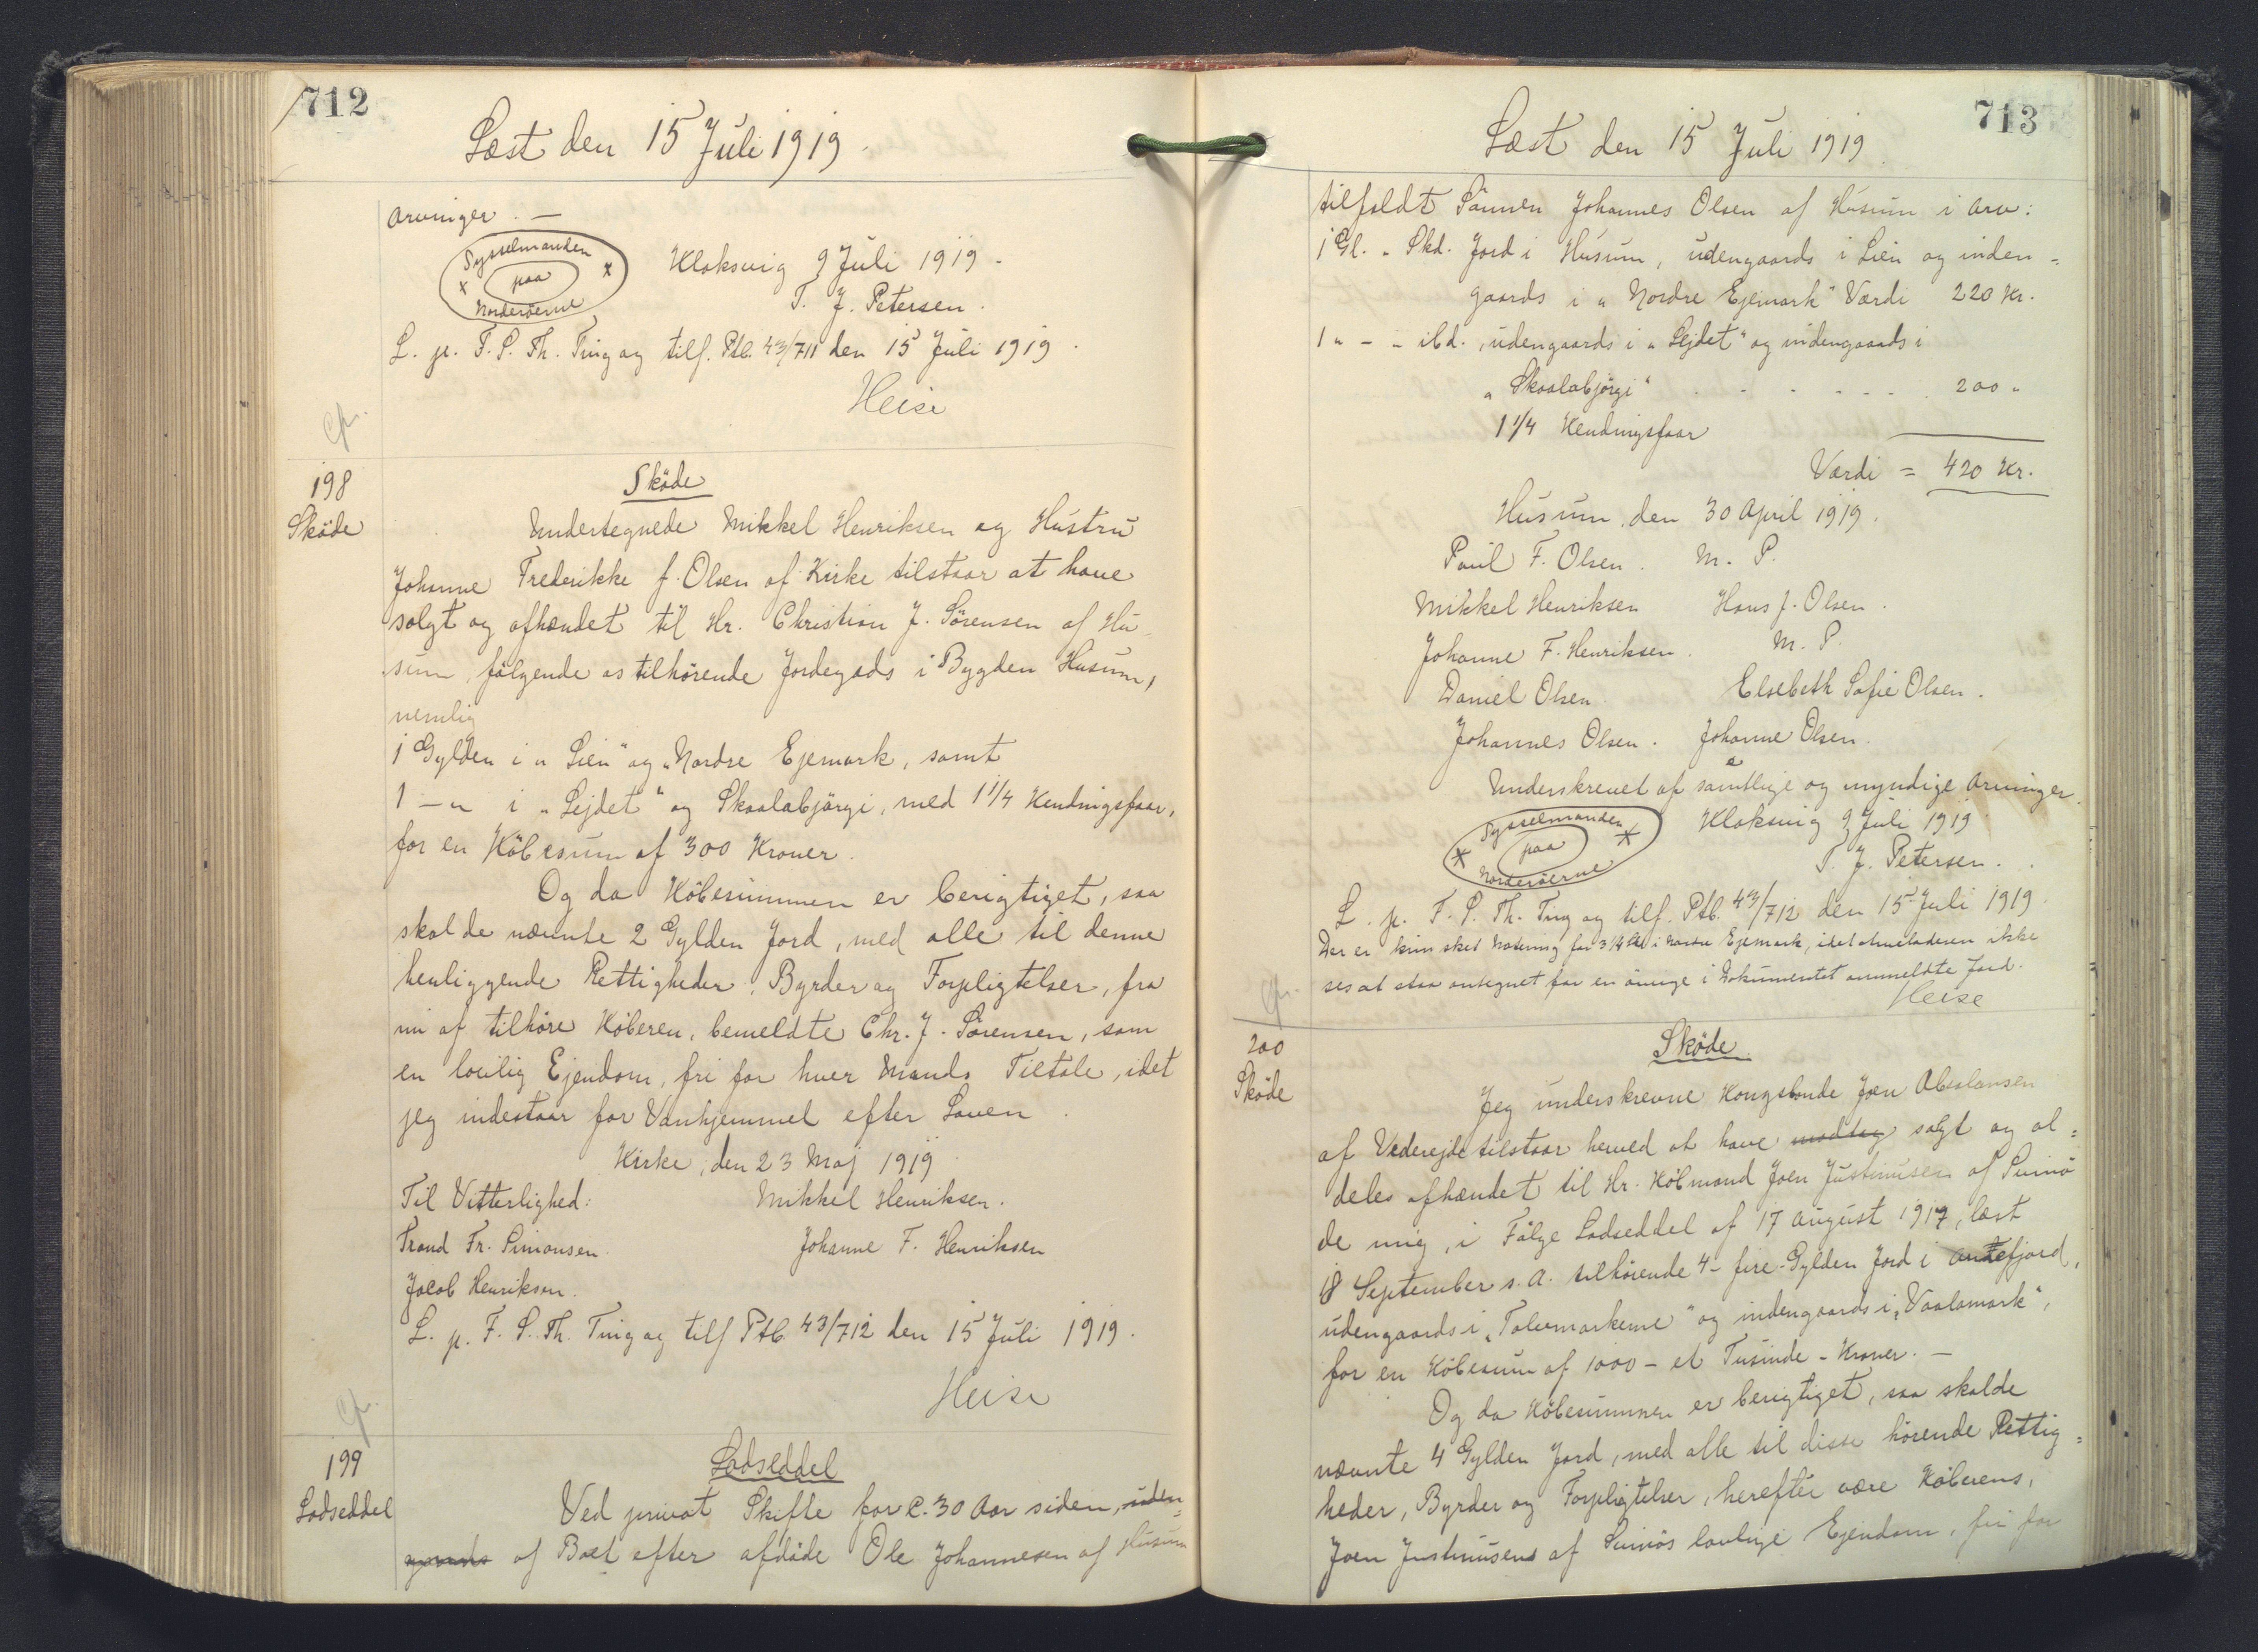 712
Læst den 15 Juli 1919.
Arvinger. —
Sysselmanden
paa
Norderöerne
Klaksvig 9 Juli 1919.
T. J. Petersen.
L. p. F. S. Th. Ting og tilf. Ptb. 43/711 den 15 Juli 1919.
Heise
Cfr.
198
Sköde
Sköde
Undertegnede Mikkel Henriksen og Hustru
Johanne Frederikke f. Olsen af Kirke tilstaar at have
solgt og afhændet til Hr. Christian J. Sörensen af Hu-
sum, fölgende os tilhörende Jordegods i Bygden Husum,
nemlig
1 Gylden i „Lien" og „Nordre Ejemark, samt
1 — „ i „Lejdet" og Skaalabjörgi, med 1 1/4 Kendingsfaar,
for en Köbesum af 300 Kroner.
Og da Köbesummen er berigtiget, saa
skal de nævnte 2 Gylden Jord, med alle til denne
henliggende Rettigheder, Byrder og Forpligtelser, fra
nu af tilhöre Köberen, bemeldte Chr. J. Sörensen, som
en lovlig Ejendom, fri for hver Mands Tiltale, idet
jeg indestaar for Vanhjemmel efter Loven.
Kirke, den 23 Maj 1919.
Til Vitterlighed: Mikkel Henriksen.
Trond Fr. Simonsen. Johanne F. Henriksen
Jacob Henriksen.
L. p. F. S. Th. Ting og tilf Ptb. 43/712 den 15 Juli 1919.
Heise
Cfr.
199
Lodseddel
Lodseddel
Ved privat Skifte for c. 30 Aar siden, uden-
gaards af Boet efter afdöde Ole Johannesen af Husum
713
Læst den 15 Juli 1919
tilfaldt Sönnen Johannes Olsen af Husum i Arv:
1 Gl. „ Skd. Jord i Husum, udengaards i Lien og inden=
gaards i „Nordre Ejemark" Værdi 220 Kr.
1 „ - - ibd., udengaards i „Lejdet" og indengaards i
„Skaalabjörgi" . - - - - - . 200 „
1 1/4 Kendingsfaar
Værdi = 420 Kr.
Husum, den 30 April 1919.
Poul F. Olsen. M. P.
Mikkel Henriksen Hans J. Olsen.
Johanne F. Henriksen. M. P.
Daniel Olsen Elsebeth Sofie Olsen.
Johannes Olsen. Johanne Olsen.
Underskrevet af samtlige og myndige Arvinger.
Sysselmanden
paa
Norderöerne
Klaksvig 9 Juli 1919
T. J. Petersen.
L. p. F. S. Th. Ting og tilf. Ptb. 43/712 den 15 Juli 1919.
Der er kun sket Notering for 3/4 Skd i Nordre Ejemark, idet Arveladeren ikke
ses at staa antegnet for en övrige i Dokumentet ommeldte Jord.
Heise
Cfr.
200
Sköde
Sköde
Jeg underskrevne Kongsbonde Joen Absalonsen
af Viderejde tilstaar herved at have modtag solgt og al=
deles afhændet til Hr. Köbmand Joen Justinusen af Svinö
de mig, i Fölge Lodseddel af 17 August 1917, læst
18 September s. A. tilhörende 4 - fire - Gylden Jord i Annefjord,
udengaards i „Talvmarkerne" og indengaards i „Vaalamark",
for en Köbesum af 1000 - et Tusinde - Kroner. —
Og da Köbesummen er berigtiget, saa skal de
nævnte 4 Gylden Jord, med alle til disse hörende Rettig=
heder, Byrder og Forpligtelser, herefter være Köberens,
Joen Justinusens af Svinös lovlige Ejendom, fri for